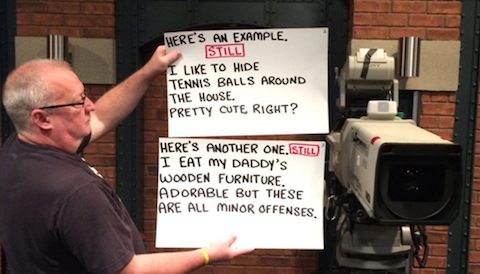 HERE'S AN EXAMPLE.
STILL
I LIKE TO HIDE
TENNIS BALLS AROUND
THE HOUSE.
PRETTY CUTE RIGHT?
HERE'S ANOTHER ONE. STILL
I EAT MY DADDY'S
WOODEN FURNITURE.
ADORABLE BUT THESE
ARE ALL MINOR OFFENSES.